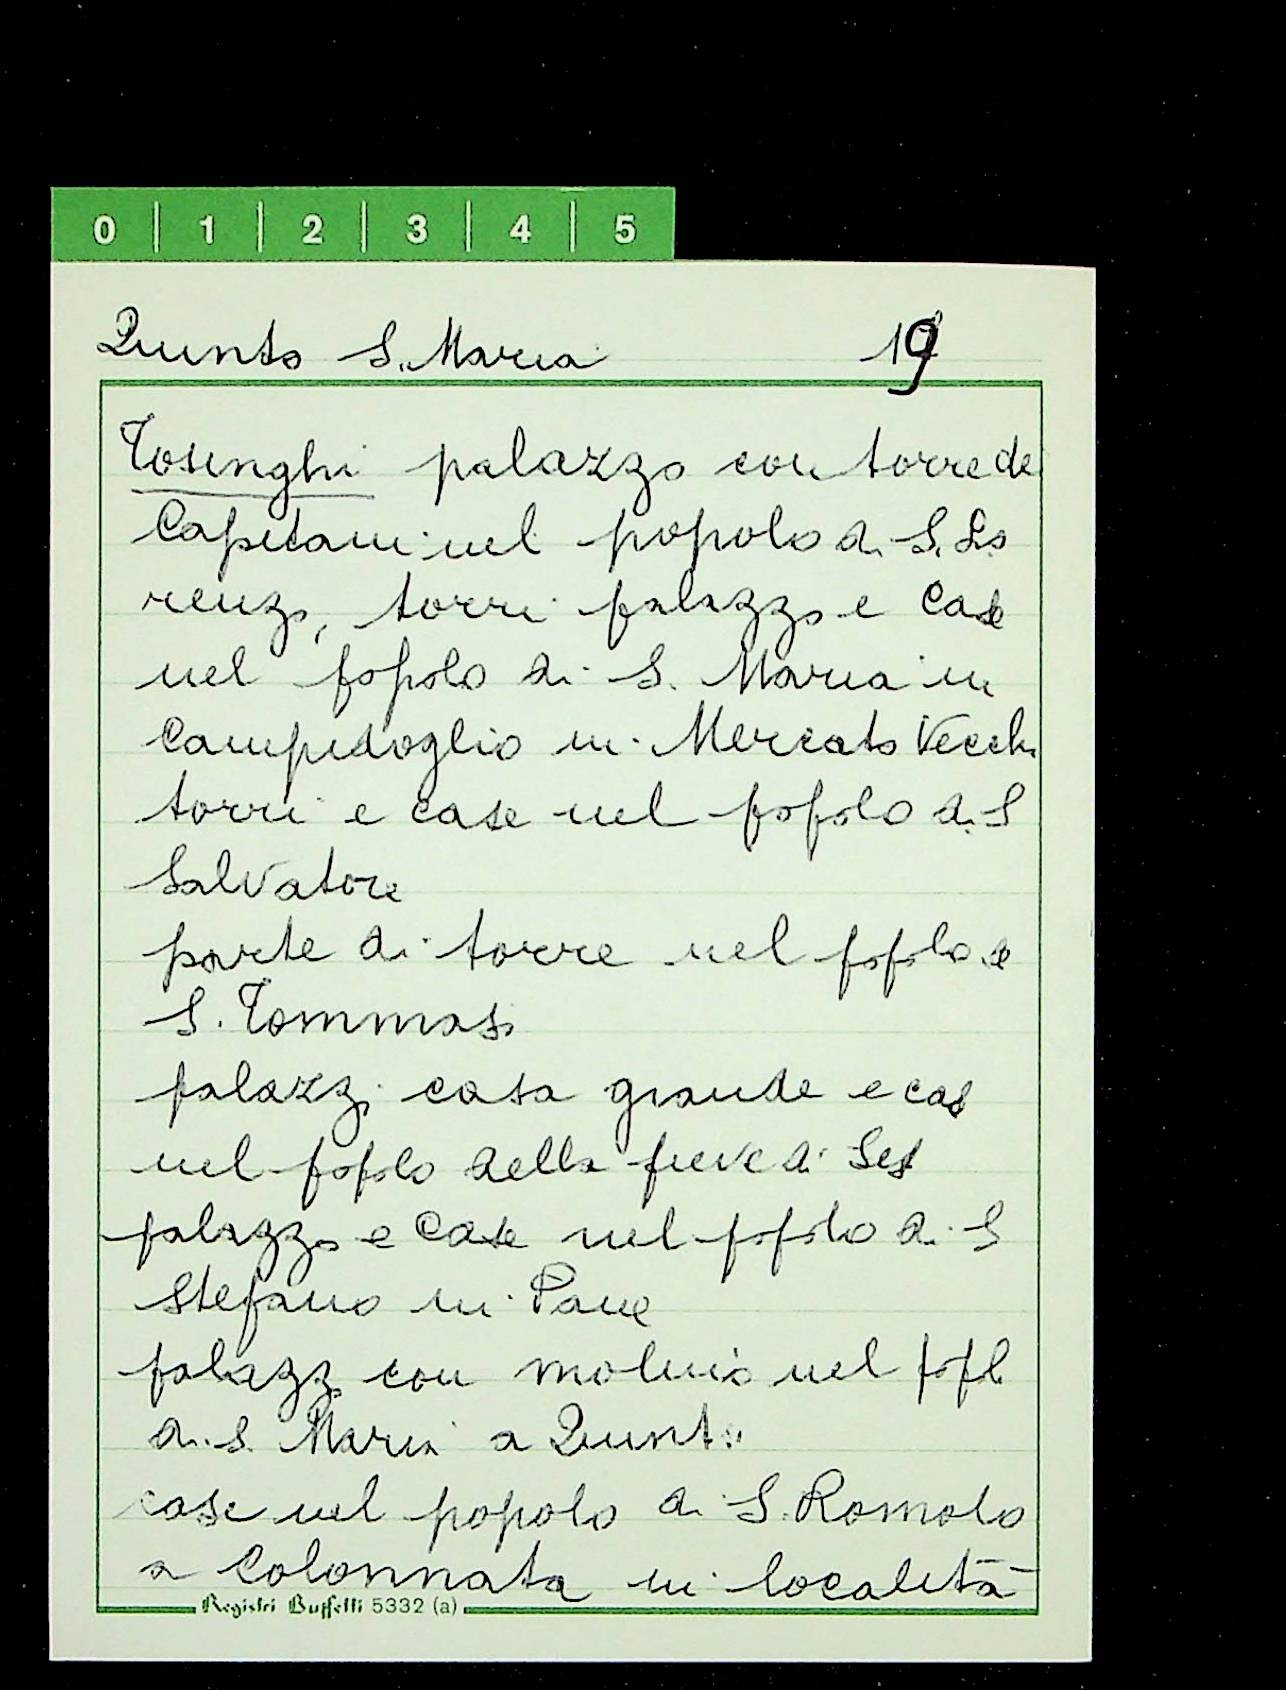 0 1 2 3 4 5
Quinto S. Maria 19
Tosinghi palazzo con torre de
Capitani nel popolo di S. Lo
renzo, torri palazzo e case
nel popolo di S. Maria in
Campidoglio in Mercato Vecchi
torri e case nel popolo di S
Salvatore
parte di torre nel popolo di
S. Tommaso
palazzi casa grande e cas
nel popolo della pieve di Sest
palazzo e case nel popolo di S
Stefano in Pane
palazzo con molino nel popl
di S. Maria a Quinto
case nel popolo di S. Romolo
a Colonnata in località
Registri Buffetti 5332 (a)